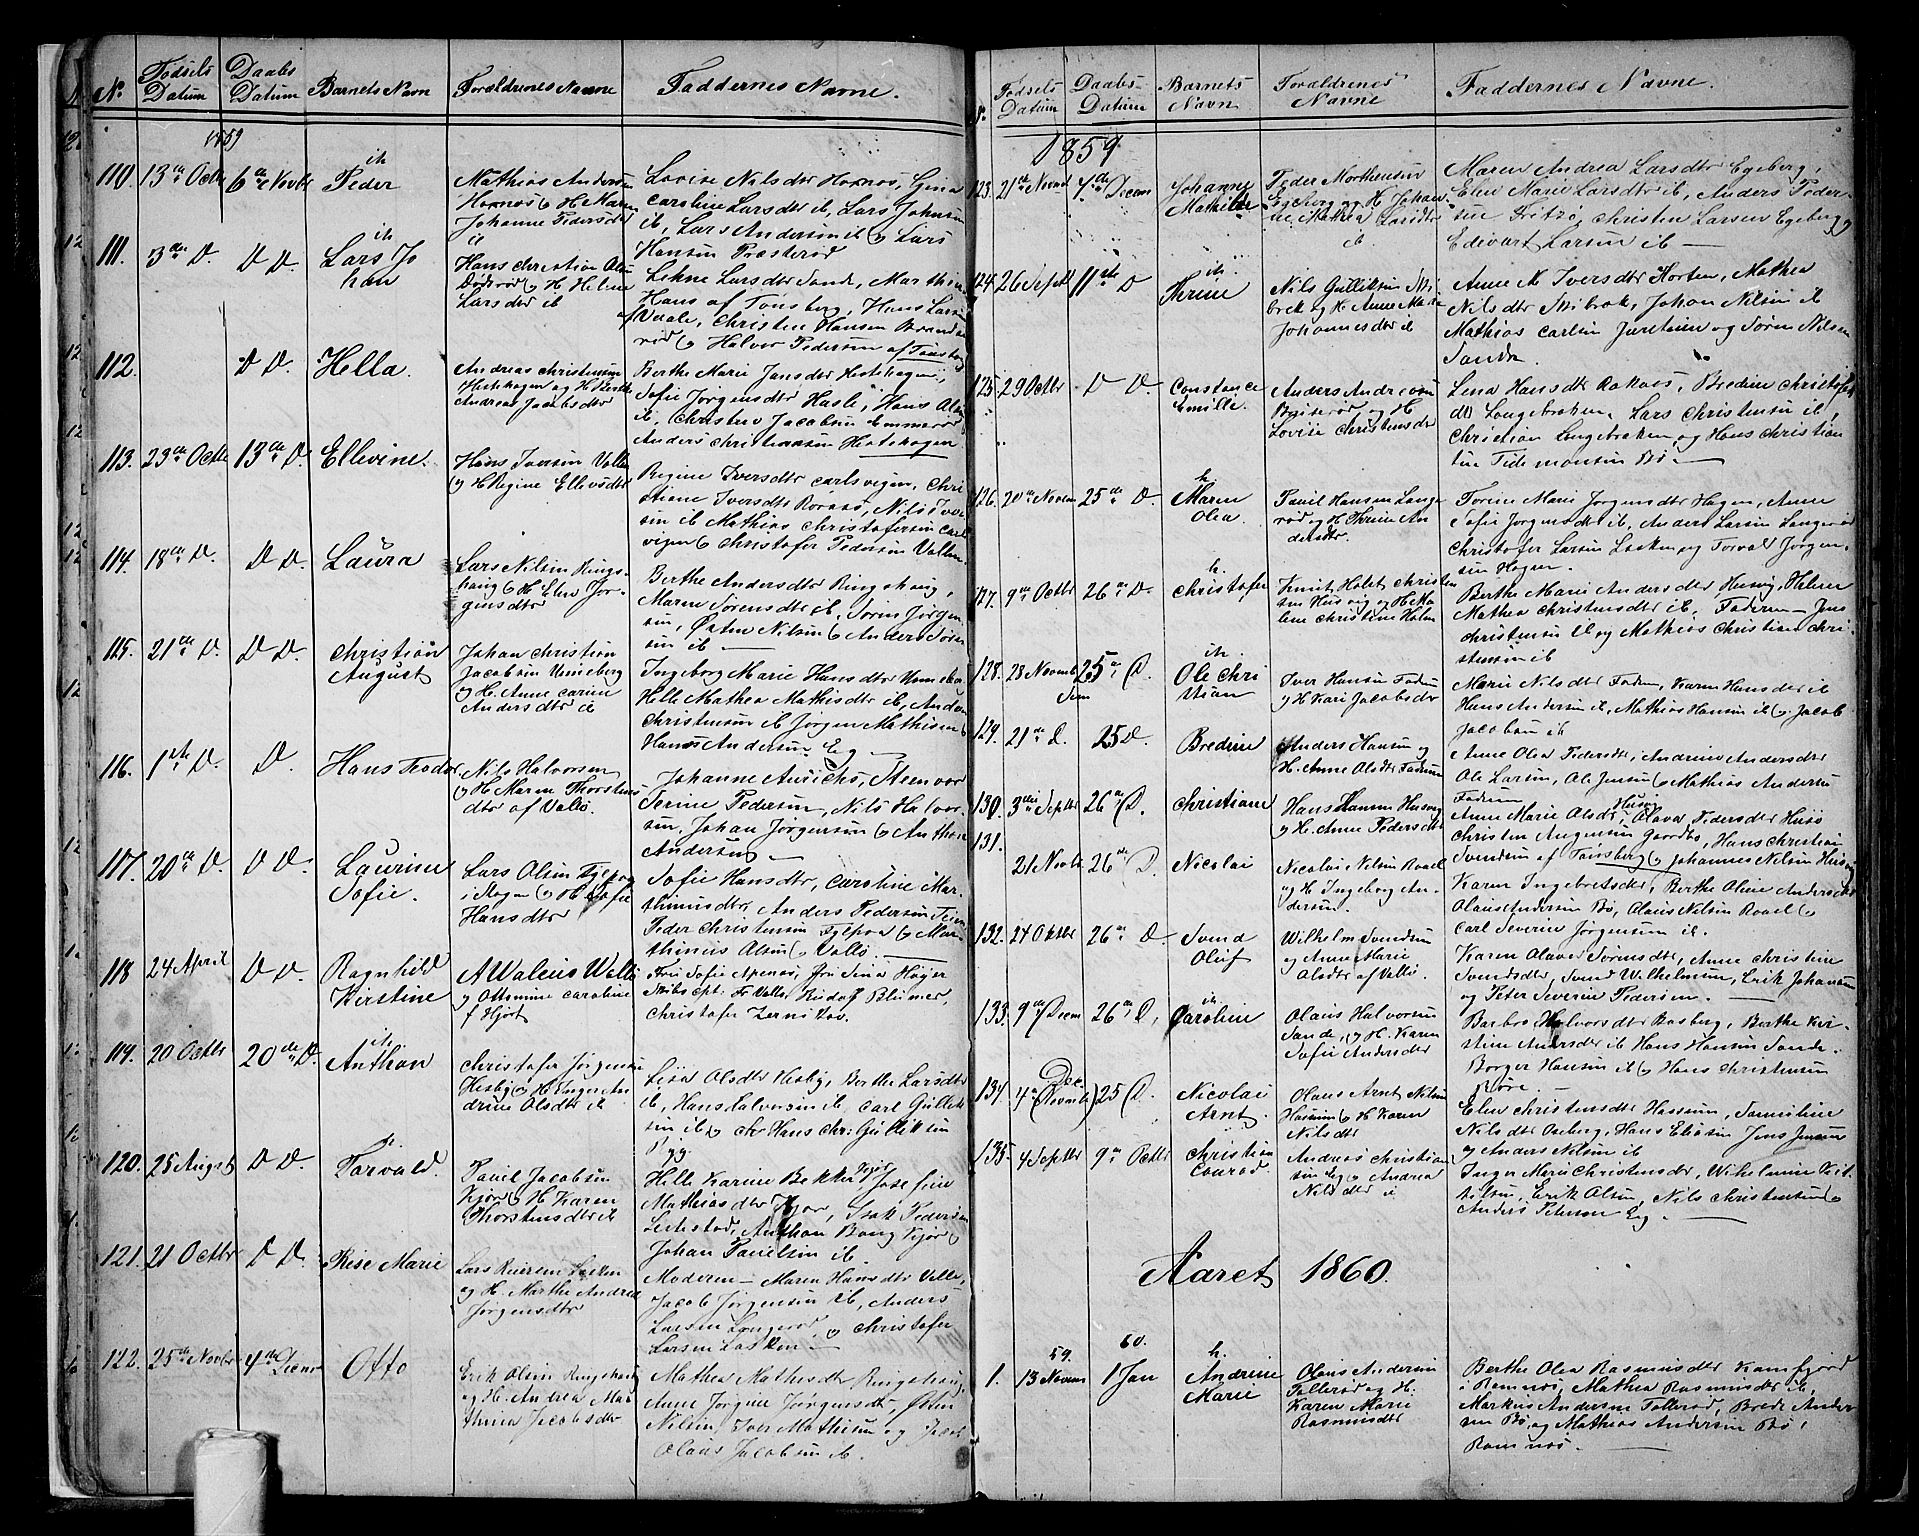 No. Fødsels Datum Daabs Datum Barnets Navn Forældrenes Navne Faddernes Navne.
1859
110. 13de Octbr 6te Novbr Peder
Mathias Andersen
Hornnes og H. Maren
Johanne Pedersdtr
ib
Lovise Nilsdtr Hornnes, Gina
Caroline Larsdtr ib, Lars Johnsen
ib, Lars Andersen ib og Lars
Hansen Præsterød
111. 3de D. D D. Lars Johan
Hans Christian Olsen
H. Helene
Larsdtr ib
Lehne Larsdtr Sande, Marthin
Hans af Tønsberg, Hans Larsen
af Vaale, Christen Hansen
og Halvor Pedersen af Tønsberg
112. D D. Hella.
Andreas Christensen
Hestehagen og H.
Andrea Jacobsdtr
Berthe Marie Jansdtr Hestehagen,
Sofie Jørgensdtr Hasle, Hans Olsen
ib, Christen Jacobsen
Anders Christiansen Hestehagen.
113. 23de Octbr 13de D. Ellevine.
Hans Iversen Valle
og H. Regine Ellevsdtr
Regine Iversdtr Carlsvigen, Chri
stiane Iversdtr Røraas, Nils Iver
sen ib Mathias Christofersen Carls
vigen og Christofer Pedersen Vallø.
114. 18de D. D D. Laura
Lars Nilsen Rings
haug og H. Elen Jør
gensdtr
Berthe Andersdtr Ringshaug,
Maren Sørensdtr ib, Søren Jørgen
sen, Østen Nilsen og Anders Søren
sen ib —
115. 21de D. D D. Christian August
Johan Christian
Jacobsen Unneberg
og H. Anne Carine
Andersdtr ib
Ingeborg Marie Hansdtr Unneberg
Helle Mathea Mathisdtr ib, Anders
Christensen ib Jørgen Mathisen og
Hans Andersen Eeg —
116. 1ste D. D. Hans Teodor
Nils Halvorsen
og H. Maren Thorstens
dtr af Vallø.
Johanne
Terine Pedersen, Nils Halvor
sen, Johan Jørgensen og Anthon
Andersen —
117. 20de D. D D. Laurine Sofie.
Lars Olsen
i Slagen og H. Sofie
Hansdtr
Sofie Hansdtr, Caroline Mar
thinusdtr, Anders Pedersen
Peder Christensen og Mar
thinius Olsen Vallø. —
118 24 April D D. Ragnhild Kirstine
A Walcus Wallø
og Ottomine Caroline
f Hjort
Fru Sofie Apenes, Fru Sina Høyer
Skibscpt: Fr Valls, Rudolf Blumer,
Christofer
119. 20 Octbr 20de D. Anthon
Christofer Jørgensen
Hesby og H. Inger An
drine Olsdtr ib
Lisa Olsdtr Hesby, Berthe Larsdtr
ib, Hans Halvorsen ib, Carl Gullik
sen ib og Hans Chr: Gulliksen
120. 25 August D D. Torvald
Pauel Jacobsen
Kjær og H Karen
Thorstensdtr ib
Helle Karine Bekker Josefine
Mathiasdtr Kjær, Isak Pedersen
Anthon Bong Kjær og
Johan Paulsen ib
121. 21 Octbr D D. Rise Marie
Lars Larsen Lasken
og H. Marthe Andrea
Jørgensdtr
Moderen — Maren Hansdtr Valle,
Jacob Jørgensen ib, Anders
Larsen Langerød, og Christofer
Larsen Lasken —
122. 25de Novbr 4de Decmr Otto
Erik Olsen Ringshaug
og H. Andrea Ma
thea Jacobsdtr
Mathea Mathisdtr Ringshaug,
Anne Jørgine Jørgensdtr, Østen
Nilsen, Iver Mathisen og
Olaus Jacobsen ib.
No. Fødsels Datum Daabs- Datum Barnets Navn Forældrenes Navne Faddernes Navne.
1859
123. 21de Novmb 4de Decem Johanne Mathilde
Peder Morthensen
Egeberg og H Johan
ne Mathea Larsdtr
ib
Maren Andrea Larsdtr Egeberg,
Elen Marie Larsdtr ib, Anders Peder
sen Fritzø, Christen Larsen Egeberg og
Edevart Larsen ib —
124. 26 Septbr 11te D Therine
Nils Gulliksen
og H. Anne Marie
Johannesdtr ib
Anne M Iversdtr Horten, Mathea
Nilsdtr Johan Nilsen ib
Mathias Carlsen og Søren Nilsen
Sande.
125. 29 Octbr D D. Constance Emilie.
Anders Andersen
og H.
Lovise Christensdtr
Lena Hansdtr Bredine Christofers
dtr Langebraken, Lars Christensen ib,
Christian Langebraken og Hans Christian
sen Tidemansen Bø. —
126. 20de Novem 25de D. Maren Olea.
Pauel Hansen Lange
rød og H Therine An
dersdtr.
Torine Marie Jørgensdtr Hagen, Anne
Sofie Jørgensdtr ib, Anders Larsen Langerød
Christofer Larsen Lasken og Torval Jørgen
sen Hagen.
127. 9de Octbr 26de D. Christofer
Knut Holst Christen
sen Husvig og H Ma
lene Christine Holm
Berthe Marie Andersdtr Husvig, Helene
Mathea Christensdtr ib. Faderen — Jens
Christensen ib og Mathias Christian Chri
stensen ib
128. 28 Novmb 25de D. Ole Christian
Iver Hansen Fadum
og H Kari Jacobsdtr
Marie Nilsdtr Fadum, Karen Hansdtr ib
Hans Andersen ib, Mathias Hansen ib og Jacob
Jacobsen ib
129. 21de D. 25 D. Bredine
Anders Hansen og
H. Anne Olsdtr Fadum
Anne Olea Pedersdtr, Andrine Andersdtr
Ole Larsen, Ole Jensen og Mathias Andersen
Fadum
130. 3die Septbr 26de D. Christiane
Hans Hansen Husvig
og H. Anne Pedersdtr
Anne Marie Olsdtr Husvig, Olava Pedersdtr Husø
Christen Augensen Hans Christian
Svendsen af Tønsberg og Johannes Nilsen Husvig
131. 21 Novbr 26de D. Nicolai
Nicolai Nilsen Roael
og H Ingeborg An
dersen.
Karen Ingebretsdtr, Berthe Oline Andersdtr
Olaus Andersen Bø, Olaus Nilsen Roael og
Carl Severin Jørgensen ib.
132. 24 Oktbr 26de D. Svend Oluf
Wilhelm Svendsen
og Anne Marie
Olsdtr af Vallø
Karen Olava Sørensdtr, Anne Christine
Svendsdtr, Svend Wilhelmsen, Erik Johansen
og Peter Severin Pedersen. —
133. 9de Decem 26de D. Caroline
Olaus Halvorsen
Sande, og H. Karen
Sofie Andersdtr
Barbro Halvorsdtr Basberg, Berthe Kir
stine Andersdtr ib Hans Hansen Sande.
Børger Hansen ib og Hans Christensen
Røre. —
134 4de Dec. (Novmb) 25 D. Nicolai Arnt.
Olaus Arnt Nilsen
Hassum og H Karen
Nilsdtr
Elen Christensdtr Hassum, Samueline
Nilsdtr Oseberg, Hans Eliasen Jens Jensen
og Anders Nilsen ib
135. 4 Septbr 9de Octbr Christian Conrad
Andreas Christian
sen Eeg og Andrea
Nilsdtr ib
Inger Marie Christensdtr, Wilhelmine Ket
tilsen, Erik Olsen, Nils Christensen og
Anders Petersen Eeg —
Aaret 1860.
59. 60.
1. 13 Novem 1 Jan Andrine Marie
Olaus Andersen
Tollerød og H.
Karen Marie
Rasmusdtr
Berthe Olea Rasmusdtr Kamfjord
i Ramnes, Mathea Rasmusdtr ib,
Markus Andersen Tollerød, Brede Ander
sen Bø, og Mathias Andersen Bø i
Ramnes. —